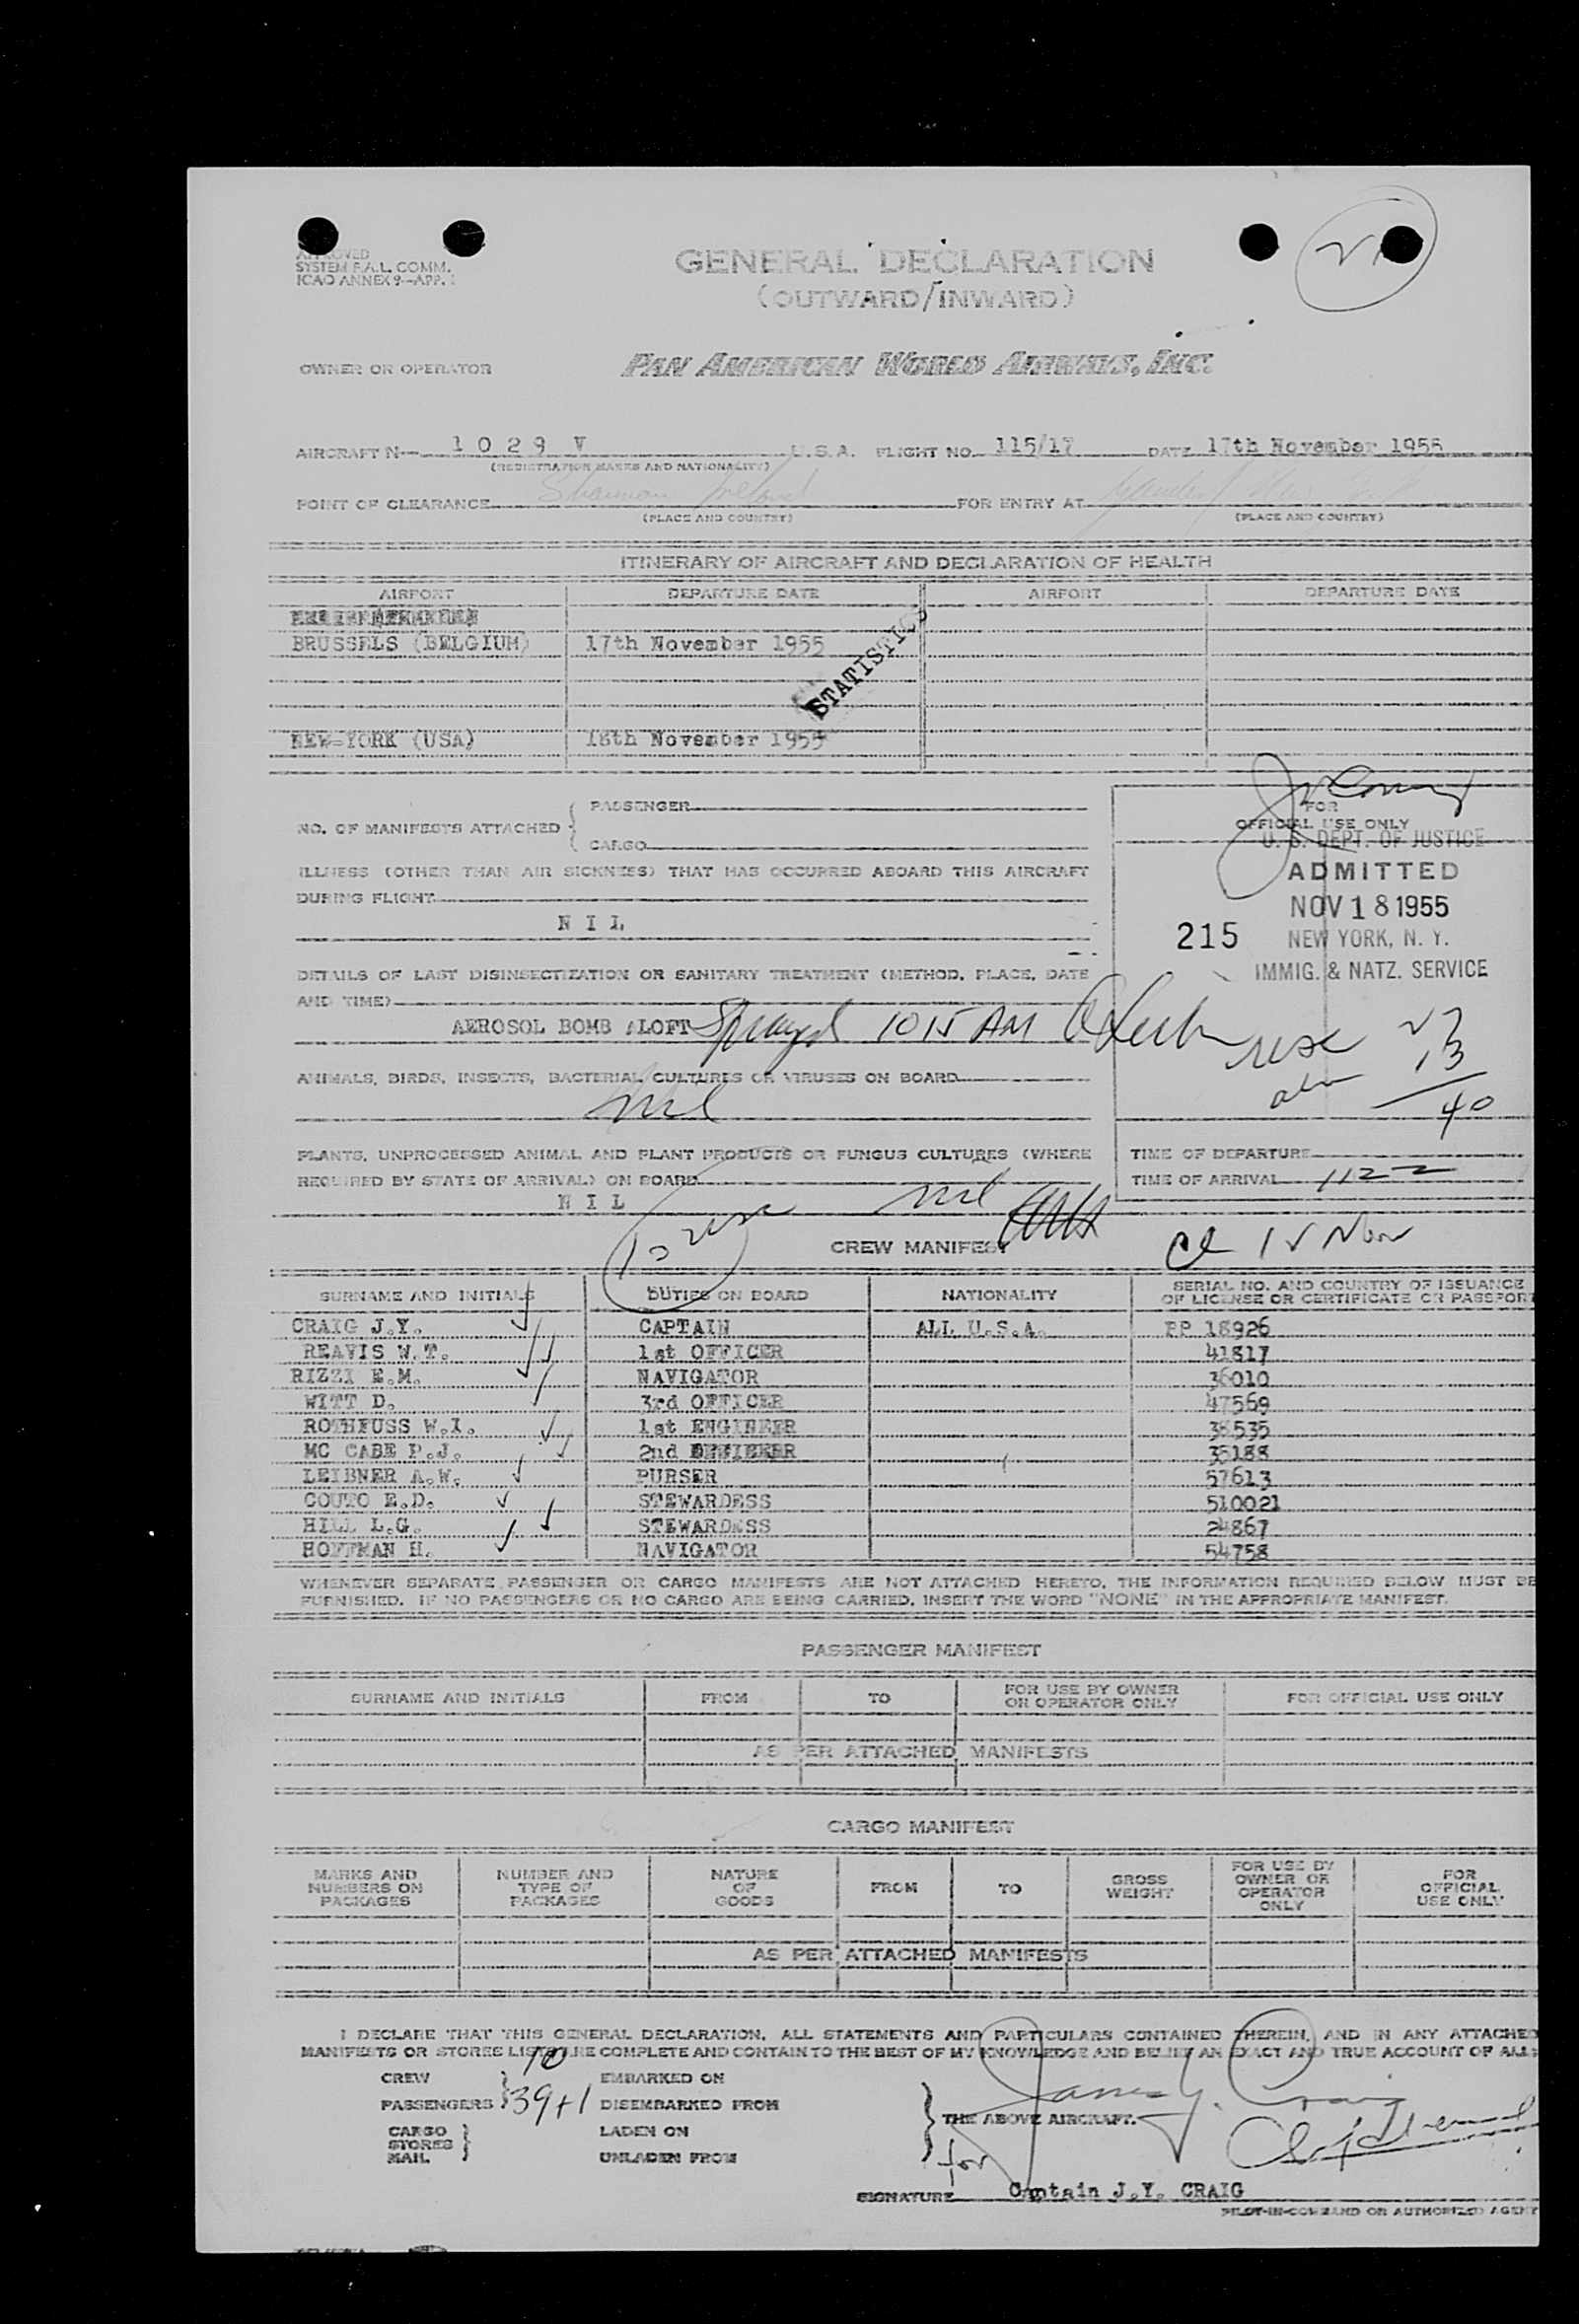 APPROVED
SYSTEM F.A.L. COMM.
ICAO ANNEX 9—APP. 1
GENERAL DECLARATION
(OUTWARD/INWARD)
OWNER OR OPERATOR PAN AMERICAN WORLD AIRWAYS, INC.
AIRCRAFT N— 1 0 2 9 V U.S.A. FLIGHT NO. 115/17 DATE 17th November 1955
(REGISTRATION MARKS AND NATIONALITY)
POINT OF CLEARANCE Shannon Ireland FOR ENTRY AT
(PLACE AND COUNTRY) (PLACE AND COUNTRY)
ITINERARY OF AIRCRAFT AND DECLARATION OF HEALTH
AIRPORT DEPARTURE DATE AIRPORT DEPARTURE DATE
BRUSSELS (BELGIUM) 17th November 1955
STATISTICS
NEW-YORK (USA) 18th November 1955
NO. OF MANIFESTS ATTACHED { PASSENGER
CARGO
FOR
OFFICIAL USE ONLY
U. S. DEPT. OF JUSTICE
ADMITTED
NOV 18 1955
215 NEW YORK, N. Y.
IMMIG. & NATZ. SERVICE
ILLNESS (OTHER THAN AIR SICKNESS) THAT HAS OCCURRED ABOARD THIS AIRCRAFT
DURING FLIGHT
N I L
DETAILS OF LAST DISINSECTIZATION OR SANITARY TREATMENT (METHOD, PLACE, DATE
AND TIME)
AEROSOL BOMB ALOFT Sprayed 1015 AM
usc 27
aln 13
40
ANIMALS, BIRDS, INSECTS, BACTERIAL CULTURES OR VIRUSES ON BOARD
Nil
PLANTS, UNPROCESSED ANIMAL AND PLANT PRODUCTS OR FUNGUS CULTURES (WHERE
REQUIRED BY STATE OF ARRIVAL) ON BOARD
N I L nil
TIME OF DEPARTURE
TIME OF ARRIVAL 1122
10 usc
CREW MANIFEST
SURNAME AND INITIALS DUTIES ON BOARD NATIONALITY SERIAL NO. AND COUNTRY OF ISSUANCE
OF LICENSE OR CERTIFICATE OR PASSPORT
CRAIG J.Y. CAPTAIN ALL U.S.A. PP 18926
REAVIS W.T. 1st OFFICER 41817
RIZZI E.M. NAVIGATOR 36010
WITT D. 3rd OFFICER 47569
ROTHFUSS W.I. 1st ENGINEER 38535
MC CABE P.J. 2nd 35188
LEIBNER A.W. PURSER 57613
COUTO E.D. STEWARDESS 510021
HILL L.G. STEWARDESS 24867
HOFFMAN H. NAVIGATOR 54758
WHENEVER SEPARATE PASSENGER OR CARGO MANIFESTS ARE NOT ATTACHED HERETO, THE INFORMATION REQUIRED BELOW MUST BE
FURNISHED. IF NO PASSENGERS OR NO CARGO ARE BEING CARRIED, INSERT THE WORD "NONE" IN THE APPROPRIATE MANIFEST.
PASSENGER MANIFEST
SURNAME AND INITIALS FROM TO FOR USE BY OWNER
OR OPERATOR ONLY FOR OFFICIAL USE ONLY
AS PER ATTACHED MANIFESTS
CARGO MANIFEST
MARKS AND
NUMBERS ON
PACKAGES NUMBER AND
TYPE OF
PACKAGES NATURE
OF
GOODS FROM TO GROSS
WEIGHT FOR USE BY
OWNER OR
OPERATOR
ONLY FOR
OFFICIAL
USE ONLY
AS PER ATTACHED MANIFESTS
I DECLARE THAT THIS GENERAL DECLARATION, ALL STATEMENTS AND PARTICULARS CONTAINED THEREIN, AND IN ANY ATTACHED
MANIFESTS OR STORES LISTS ARE COMPLETE AND CONTAIN TO THE BEST OF MY KNOWLEDGE AND BELIEF AN EXACT AND TRUE ACCOUNT OF ALL:
CREW 10 EMBARKED ON
PASSENGERS 39+1 DISEMBARKED FROM
CARGO
STORES
MAIL
LADEN ON
UNLADEN FROM
THE ABOVE AIRCRAFT.
James Y. Craig
for
SIGNATURE Captain J.Y. CRAIG
PILOT-IN-COMMAND OR AUTHORIZED AGENT